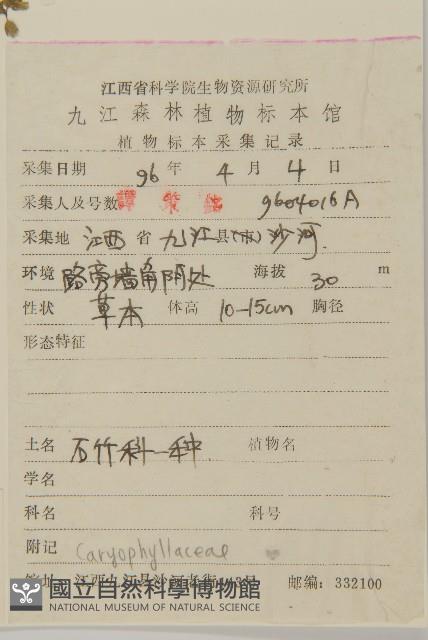 江西省科学院生物资源研究所
九江森林植物标本馆
植物标本采集记录
采集日期 96 年 4 月 4 日
采集人及号数 譚策铭 9604016A
采集地 江西 省 九江 县(市) 沙河.
环境 路旁墙角阴处 海拔 30 m
性状 草本 体高 10-15cm 胸径
形态特征
土名 石竹科一种 植物名
学名
科名 科号
附记 Caryophyllaceae
馆址 江西九江县沙河老街 号 邮编: 332100
國立自然科學博物館
NATIONAL MUSEUM OF NATURAL SCIENCE